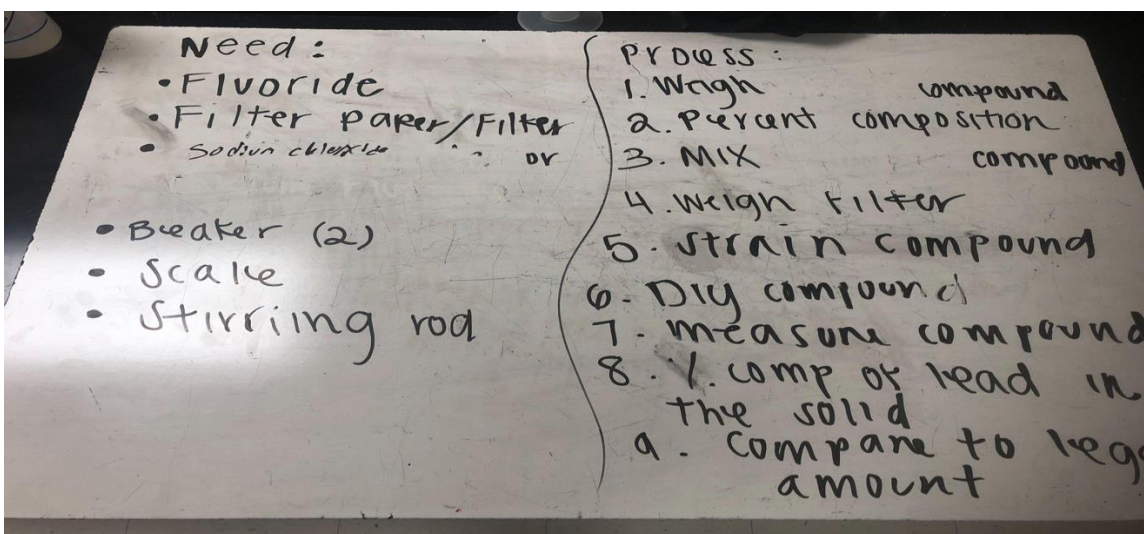 Need:
• Fluoride
• Filter paper/Filter
• Sodium chloride or
• Beaker (2)
• Scale
• Stirriing rod
Process:
1. Weigh compound
2. Percent composition
3. MIX compound
4. Weigh filter
5. Strain compound
6. Dry compound
7. measure compound
8. %. comp of lead in
the solid
9. Compare to lega
amount